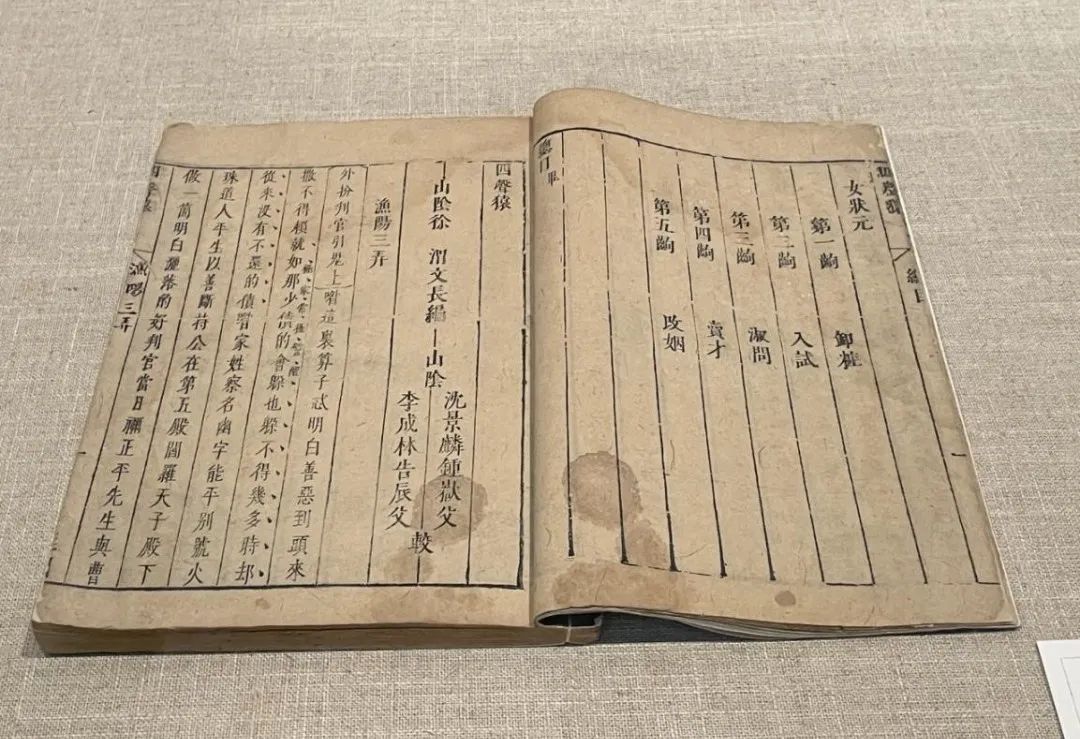 四聲猿
總目
一
女狀元
第一齣 卸粧
第二齣 入試
第三齣 淑問
第四齣 賣才
第五齣 改姻
總目畢
四聲猿
山陰徐 渭文長編 山陰
沈景麟鍾嶽父
李成林告辰父
較
漁陽三弄
外扮判官引鬼上咱這裏算子忒明白善惡到頭來
撒不得賴就如那少債的會躲也躲不得幾多時却
從來沒有不還的債咱家姓察名幽字能平別號火
珠道人平生以善斷持公在第五殿閻羅天子殿下
做一箇明白灑落的好判官當日禰正平先生與曹
四聲猿
漁陽三弄